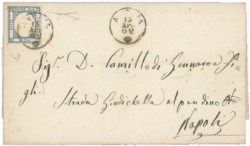 13
APR
62
Sig.r D. Camillo di Gennaro fu
gli
Strada Giudichella al pendino
Napoli